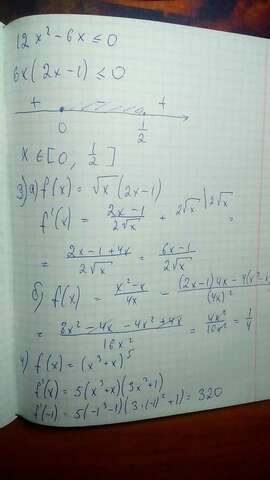 12x² - 6x ≤ 0
6x(2x-1) ≤ 0
+ +
0 1/2
x ∈ [0; 1/2]
3) а) f(x) = √x (2x-1)
f'(x) = (2x-1)/(2√x) + 2√x |2√x =
= (2x-1+4x)/(2√x) = (6x-1)/(2√x)
б) f(x) = (x²-x)/(4x) - ((2x-1)4x - 4(x²-x
(4x)²
= (8x² - 4x - 4x² + 4x)/(16x²) = 4x²/16x² = 1/4
4) f(x) = (x³+x)⁵
f'(x) = 5(x³+x)(3x²+1)
f'(-1) = 5(-1³-1)(3·(-1)²+1) = 320